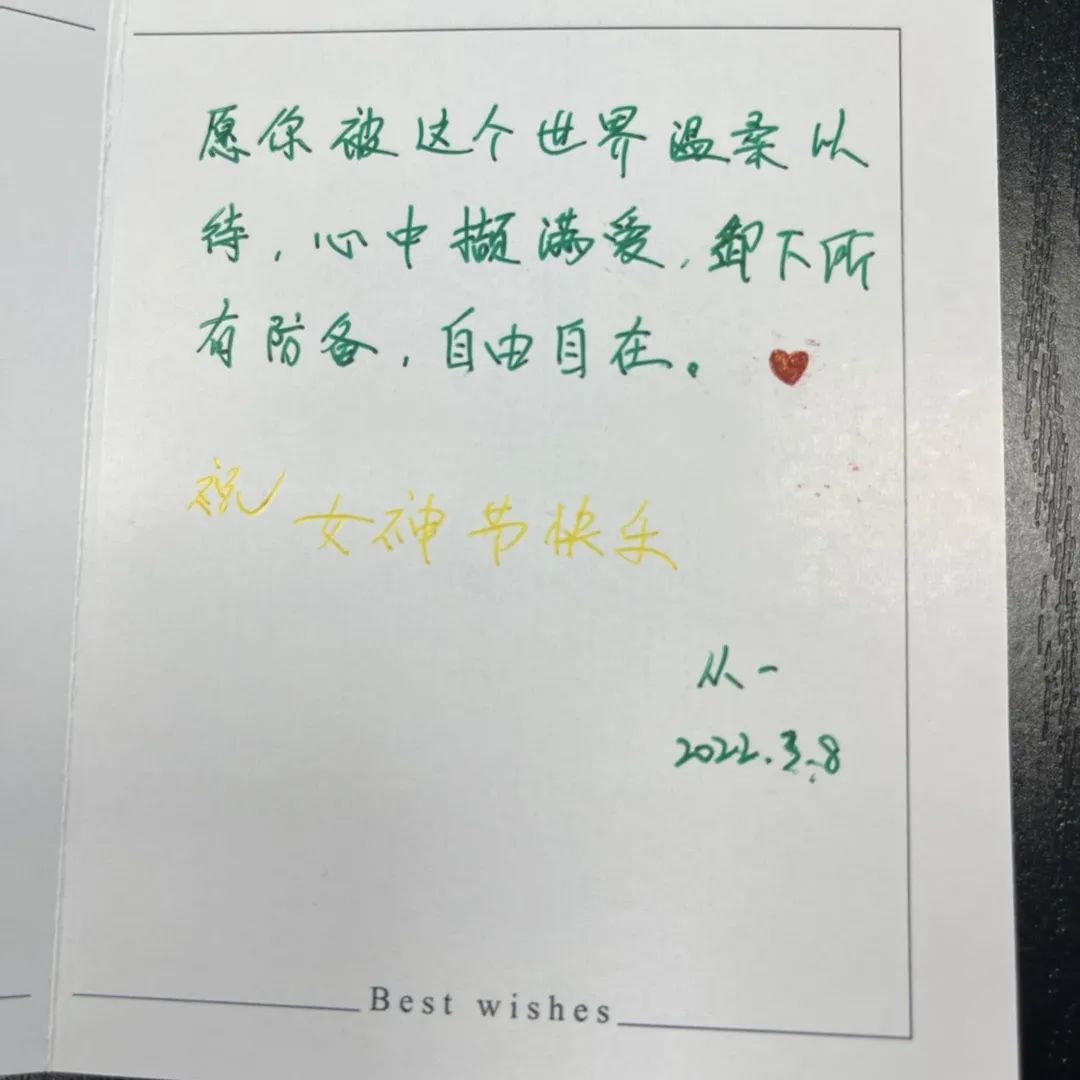 愿你被这个世界温柔以
待,心中撷满爱,卸下所
有防备,自由自在。
祝女神节快乐
从一
2022.3.8
Best wishes